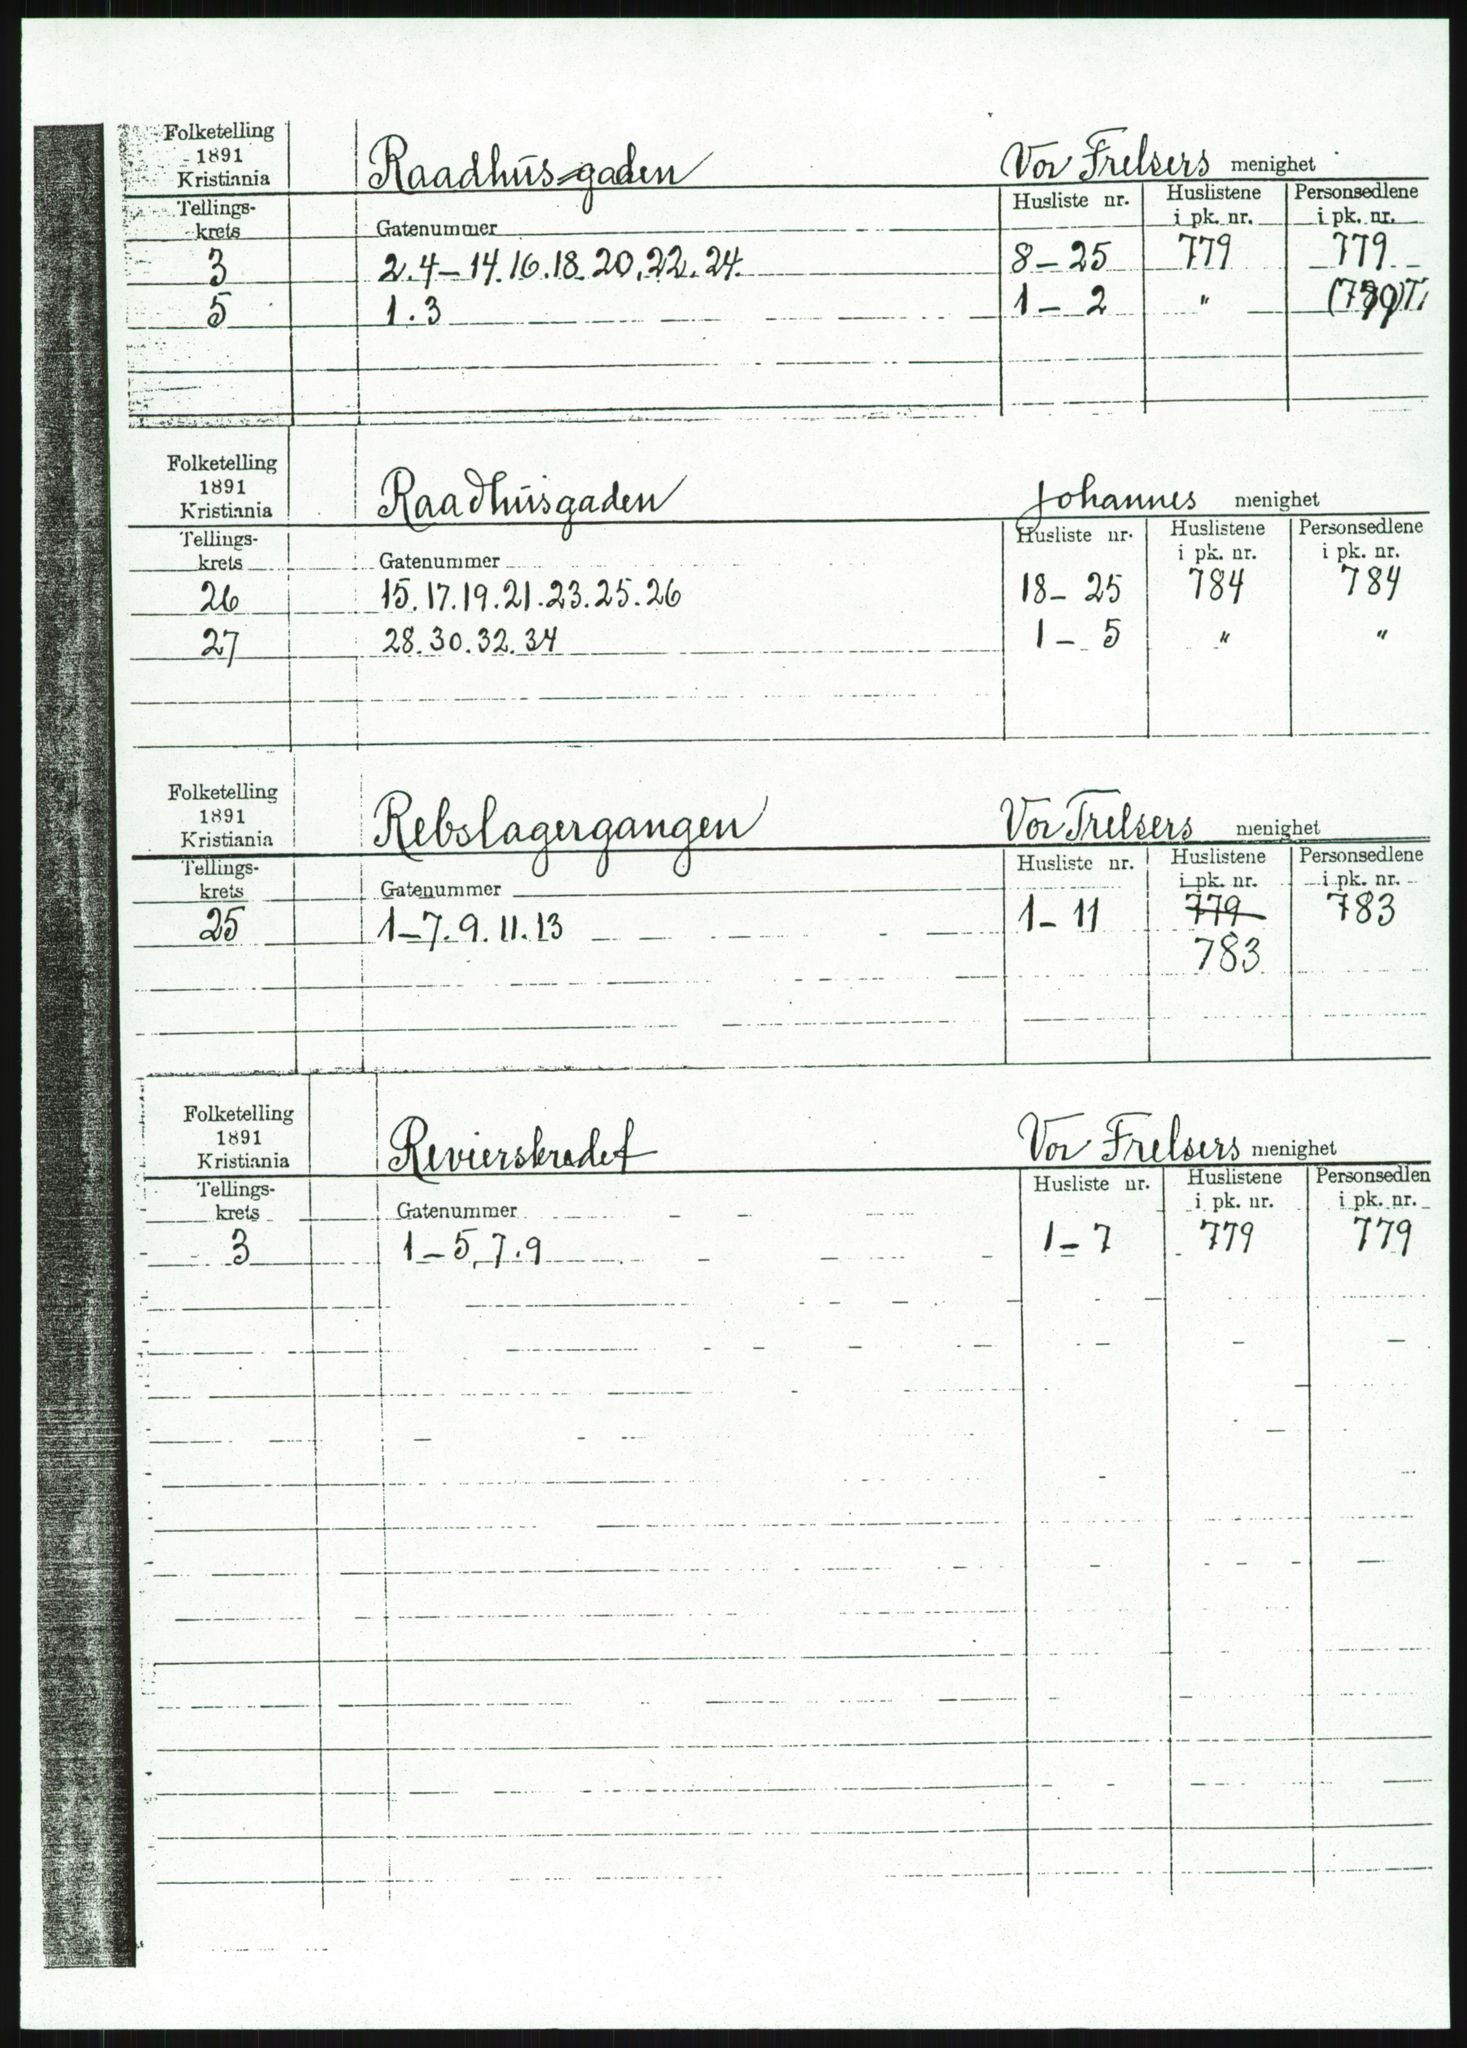 Folketelling
1891
Kristiania
Raadhusgaden
Vor Frelsers menighet
Tellings-
krets
Gatenummer
Husliste nr.
Huslistene
i pk. nr.
Personsedlene
i pk. nr.
3 2.4–14.16.18.20.22.24. 8–25 779 779
5 1.3 1–2 "
Folketelling
1891
Kristiania
Raadhusgaden
Johannes menighet
Tellings-
krets
Gatenummer
Husliste nr.
Huslistene
i pk. nr.
Personsedlene
i pk. nr.
26 15.17.19.21.23.25.26 18–25 784 784
27 28.30.32.34 1–5 " "
Folketelling
1891
Kristiania
Rebslagergangen
Vor Frelsers menighet
Tellings-
krets
Gatenummer
Husliste nr.
Huslistene
i pk. nr.
Personsedlene
i pk. nr.
25 1–7.9.11.13 1–11 779 783
783
Folketelling
1891
Kristiania
Revierstredet
Vor Frelsers menighet
Tellings-
krets
Gatenummer
Husliste nr.
Huslistene
i pk. nr.
Personsedlen
i pk. nr.
3 1–5.7.9 1–7 779 779